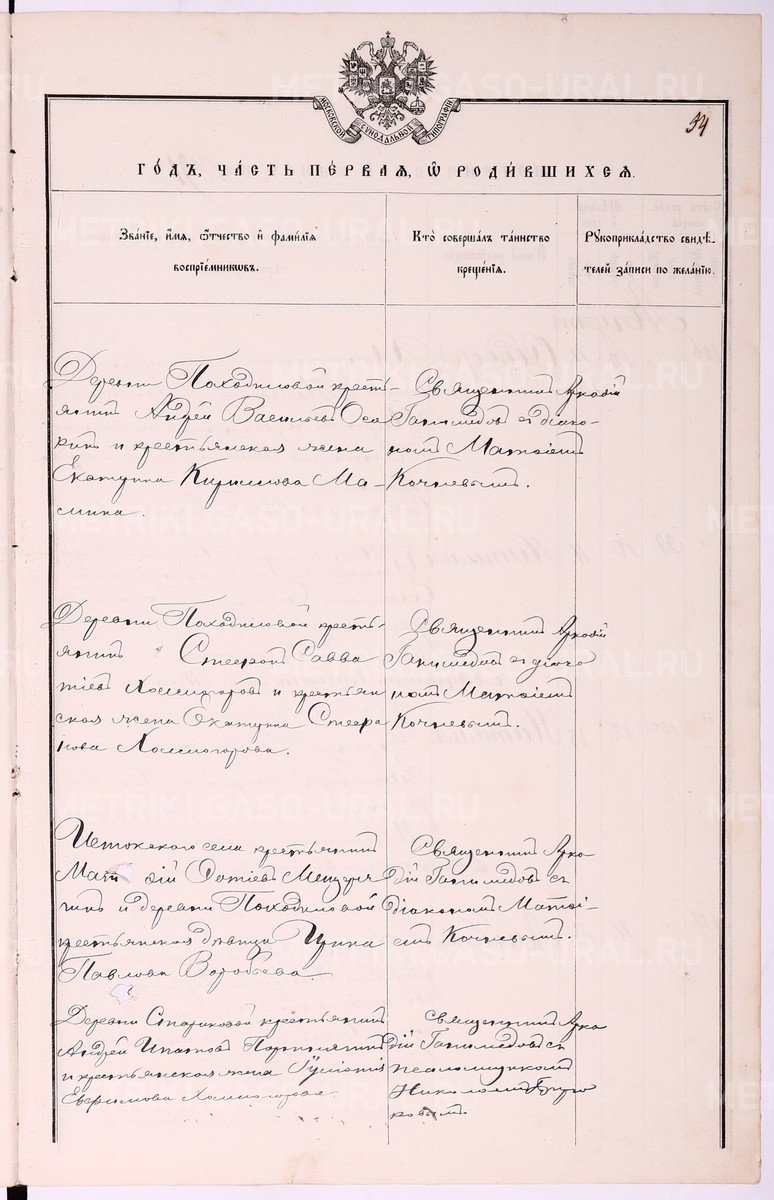 МОСКОВСКОЙ СѴНОДАЛЬНОЙ ТИПОГРАФІИ
34
ГО́ДЪ, ЧА́СТЬ ПЕ́РВАЯ, Ѿ РОДИ́ВШИХСЯ.
Зва́ніе, и҆́мя, ѻ҆́тчество и҆ фами́лія
воспрїе́мниковъ.
Кто̀ соверша́лъ та́инство
креще́нїя.
Рꙋкоприкла́дство свидѣ́-
телей за́писи по жела́нїю.
Деревни Походиловой кресть-
янинъ Андрей Васильевъ Осо
кинъ и крестьянская жена
Екатерина Кириллова Ма-
мина.
Священникъ Аркадій
Ганимедовъ съ діако-
номъ Матѳіемъ
Кочневымъ.
Деревни Походиловой кресть-
янинъ Савва
тіевъ Холмогоровъ и крестьян
ская жена Екатерина
нова Холмогорова.
Священникъ Аркадій
Ганимедовъ съ діако
номъ Матѳіемъ
Кочневымъ.
Истокскаго села крестьянинъ
Мат ѳій Фотіевъ
и деревни Походиловой
крестьянская дѣвица Ирина
Павлова Воробьева.
Священникъ Арка
дій Ганимедовъ съ
діакономъ Матѳі-
емъ Кочневымъ.
Деревни Стариковой крестьянинъ
Андрей Ипатовъ
и крестьянская жена
Евфимова Холмогорова.
Священникъ Арка
дій Ганимедовъ съ
псаломщикомъ
Николаемъ
METRIKI.GASO-URAL.RU